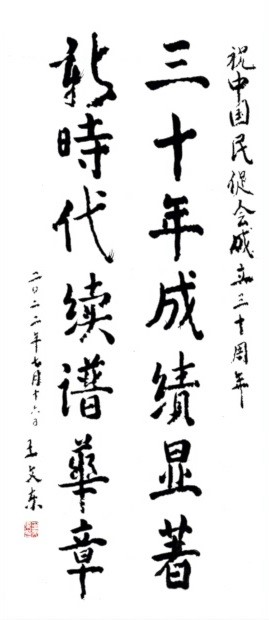 祝中国民促会成立三十周年
三十年成績显著
新時代续譜華章
二〇二二年七月十六日
王文东